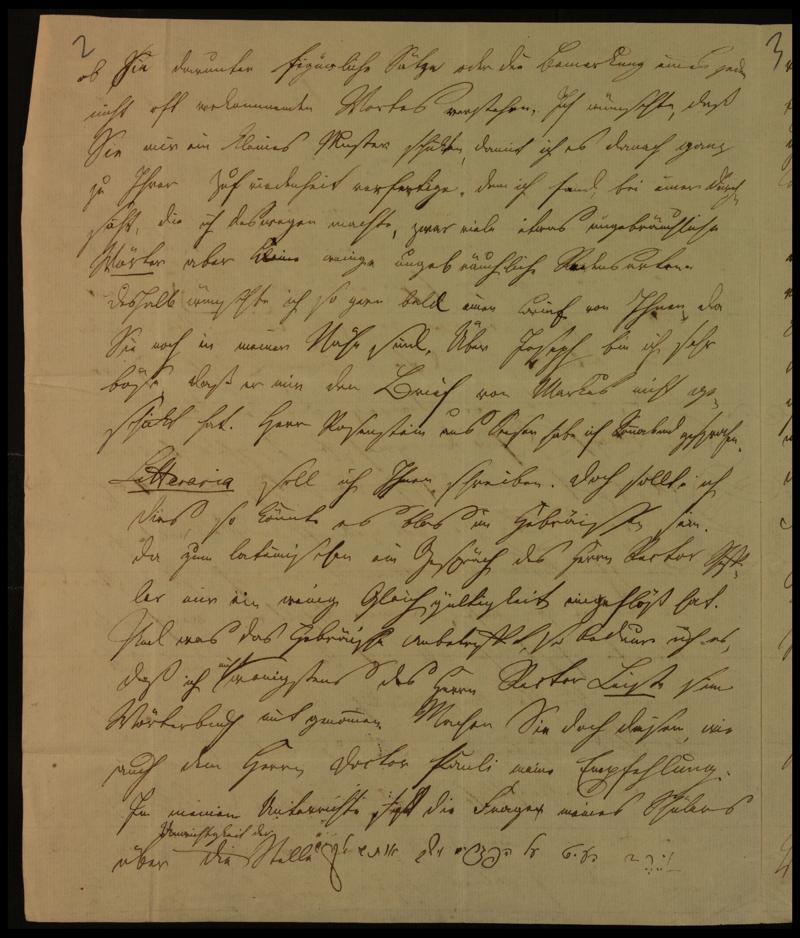 2
3
ob Sie darunter figürliche Sätze oder die Bemerkung eines jeden
nicht oft vorkommenden Wortes verstehen. Ich wünschte, daß
Sie mir ein kleines Muster schickten, damit ich es danach ganz
zu Ihrer Zufriedenheit verfertige. denn ich fand, bei einer Durch
sicht, die ich deswegen machte, zwar viele etwas ungebräuchliche
Wörter aber keine einzige ungebräuchliche Redensarten.
deshalb wünschte ich so gern bald einen Brief von Ihnen, da
Sie noch in meiner Nähe sind. Über Joseph bin ich sehr
böse daß er mir den Brief von Markus nicht ge
schickt hat. Herr Rosenstein aus habe ich Sonnabend gesprochen.
Litteraria soll ich Ihnen schreiben. Doch sollte ich
dies so könnte es blos im Hebräischen sein.
da zum lateinischen ein Gespräch des Herrn Rector
ler mir ein wenig Gleichgültigkeit eingeflößt hat.
Und was das Hebräische anbetrifft, so bedaure ich es,
daß ich nicht wenigstens des Herrn Rector Leiste sein
Wörterbuch mit genommen. Machen Sie doch diesem, wie
auch dem Herrn Doctor Pauli meine Empfehlung.
In meinem Unterrichte die Frage meines Schülers
Unrichtigkeit der
über die Stelle